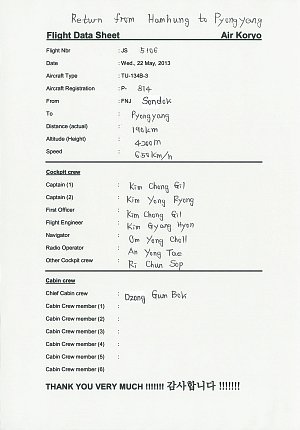 Return from Hamhung to Pyongyang
Flight Data Sheet Air Koryo
Flight Nbr : JS 5106
Date : Wed., 22 May, 2013
Aircraft Type : TU-134B-3
Aircraft Registration : P- 814
From : FNJ Sondok
To : Pyongyang
Distance (actual) : 190km
Altitude (Height) : 4200m
Speed : 650km/h
Cockpit crew
Captain (1) : Kim Chong Gil
Captain (2) : Kim Yong Ryong
First Officer : Kim Chong Gil
Flight Engineer : Kim Gyong Hyon
Navigator : Om Yong Choll
Radio Operator : An Yong Tae
Other Cockpit crew : Ri Chun Sop
Cabin crew
Chief Cabin crew : Dzong Gum Bok
Cabin Crew member (1) :
Cabin Crew member (2) :
Cabin Crew member (3) :
Cabin Crew member (4) :
Cabin Crew member (5) :
Cabin Crew member (6) :
THANK YOU VERY MUCH !!!!!!! 감사합니다 !!!!!!!